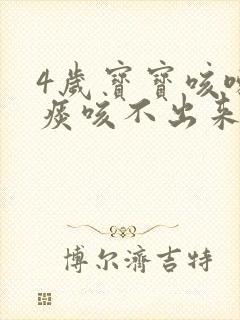 4歲寶寶咳嗽
痰咳不出來
博尔濟吉特